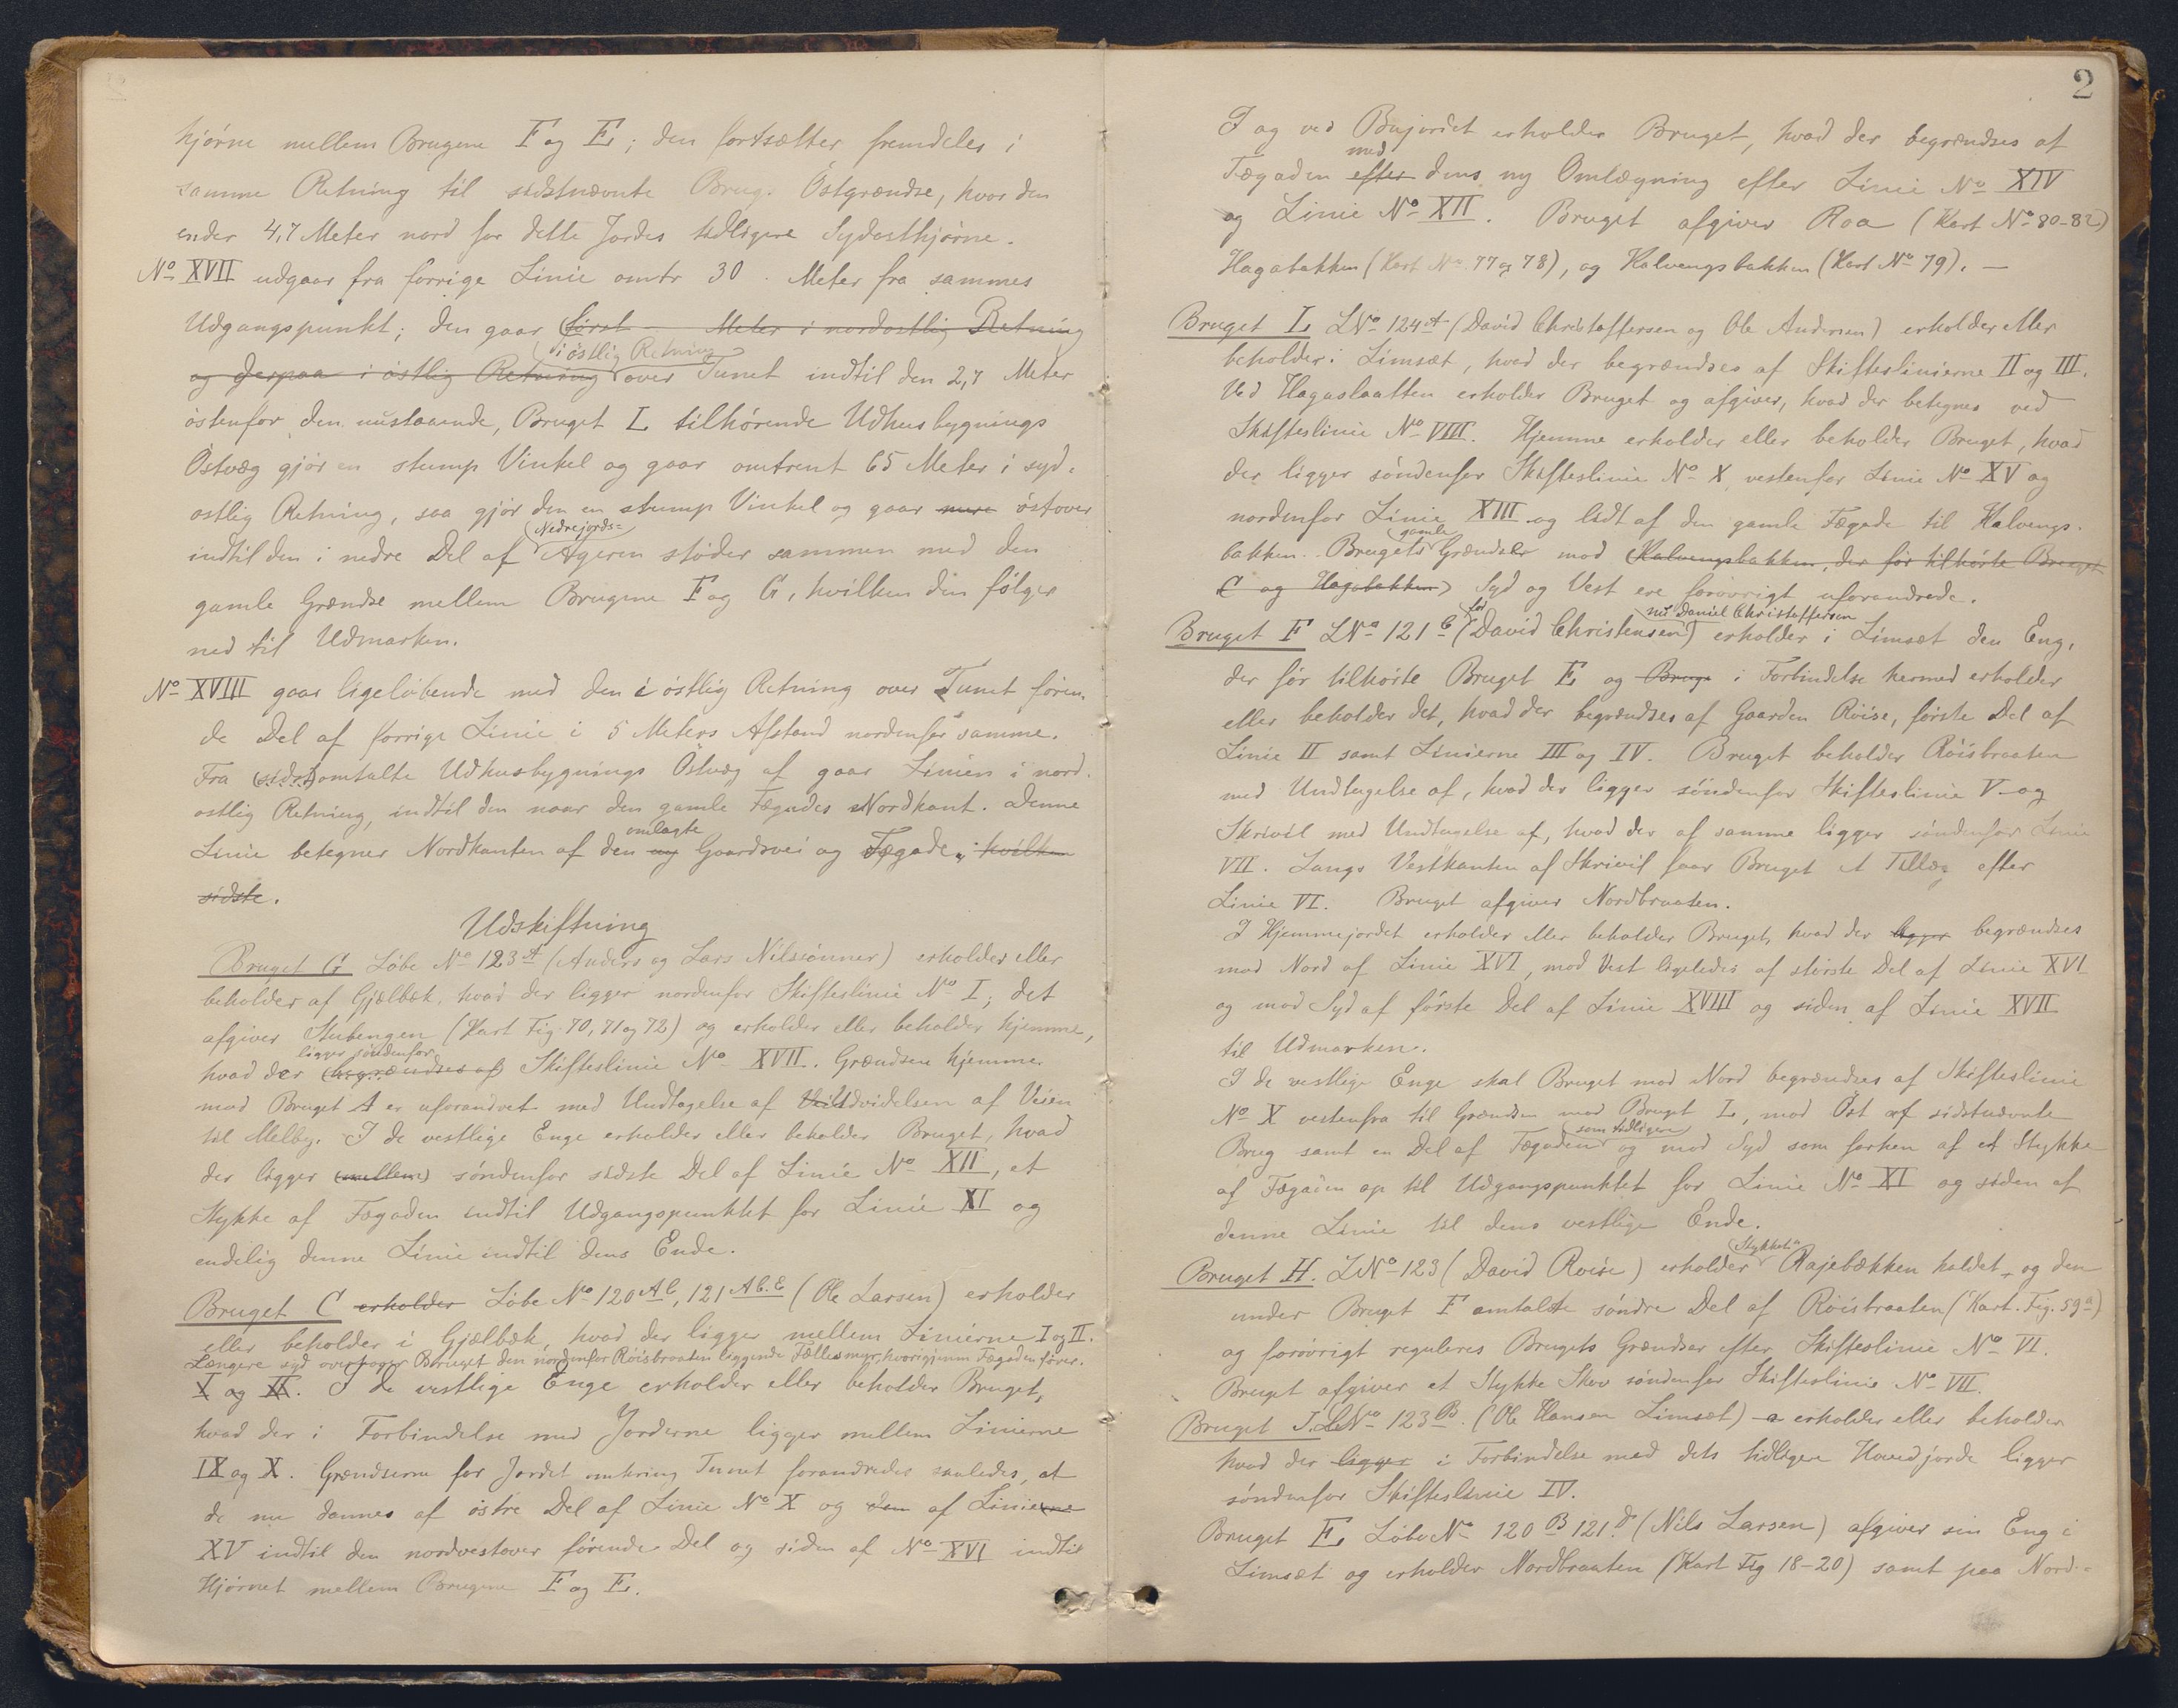 hjørne mellem Brugene F og E; den fortsætter fremdeles i
samme Retning til sidstnævnte Brug. Östgrændse, hvor den
ender 4,7 Meter nord for dette Jordes tidligere Sydosthjørne.
No XVII udgaar fra forrige Linie omtr 30 . Meter fra sammes
Udgangspunkt; den gaar (først – Meter i nordostlig Retning
(i östlig Retning
og derpaa i östlig Retning) over Tunet indtil den 2,7 Meter
östenfor den nustaaende, Bruget L tilhörende Udhusbygnings
Östvæg gjör en stump Vinkel og gaar omtrent 65 Meter i syd-
ostlig Retning, saa gjör den en stump Vinkel og gaar mere östover
(Nedrejords=
indtil den i nedre Del af Ageren stöder sammen med den
gamle Grændse mellem Brugene F og G, hvilken den fölger
ned til Udmarken.
No XVIII gaar ligelöbende med den i östlig Retning over Tunet fören-
de Del af forrige Linie i 5 Meters Afstand nordenfor samme.
Fra (sidst)omtalte Udhusbygnings Östvæg af gaar Linien i nord-
ostlig Retning, indtil den naar den gamle Fægades Nordkant. Denne
omlagte
Linie betegner Nordkanten af den ny Gaardsvei og Fægade, hvilken
sidste.
Udskiftning
Bruget G Löbe No 123 A (Anders og Lars Nilssönner) erholder eller
beholder af Gjælbæk, hvad der ligger nordenfor Skifteslinie No I; det
afgiver Stubengen (Kart Fig. 70, 71 og 72) og erholder eller beholder hjemme,
ligger söndenfor
hvad der (begrændses af) Skifteslinie No XVII. Grændsen hjemme
mod Bruget A er uforandret med Undtagelse af Udvidelsen af Veien
til Melby. I de vestlige Enge erholder eller beholder Bruget, hvad
der ligger (mellem) söndenfor sidste Del af Linie No XII, et
Stykke af Fægaden indtil Udgangspunktet for Linie XI og
endelig denne Linie indtil dens Ende.
Bruget C erholder Löbe No 120 A C, 121 A C. E (Ole Larsen) erholder
eller beholder i Gjælbæk, hvad der ligger mellem Linierne I og II.
Længere syd overtager Bruget den nordenfor Röisbraaten liggende Fællesmyr, hvorigjennem Fægaden förer.
X og XX. I de vestlige Enge erholder eller beholder Bruget,
hvad der i Forbindelse med Jorderne ligger mellem Linierne
IX og X. Grændserne for Jordet omkring Tunet forandredes saaledes, at
de nu dannes af östre Del af Linie No X og den af Linierne
XV indtil den nordvestover förende Del og siden af No XVI indtil
Hjörnet mellem Brugene F og E.
2
I og ved Bujordet erholder Bruget, hvad der begrændses af
med
Fægaden efter dens ny Omlægning efter Linie No XIV
og Linie No XII. Bruget afgiver Roa (Kart No 80-82)
Hagabakken (Kart No 77 og 78), og Kalvengsbakken (Kart No 79). —
Bruget L LNo 124 A (David Christoffersen og Ole Andersen) erholder eller
beholder i Limsæt, hvad der begrændses af Skifteslinierne II og III.
Ved Hagaslaatten erholder Bruget og afgiver, hvad der betegnes ved
Skifteslinie No VIII. Hjemme erholder eller beholder Bruget, hvad
der ligger söndenfor Skifteslinie No X, vestenfor Linie No XV og
nordenfor Linie XIII og lidt af den gamle Fægade til Kalvengs-
gamle
bakken. Brugets Grændser mod (Kalvengsbakken, der för tilhörte Bruget
C og Hagabakken) Syd og Vest ere forövrigt uforandrede.
för nu Daniel Christoffersen
Bruget F LNo 121 C (David Christensen) erholder i Limsæt den Eng,
der för tilhörte Bruget E og Bruge i Forbindelse hermed erholder
eller beholder det, hvad der begrændses af Gaarden Röise, förste Del af
Linie II samt Linierne III og IV. Bruget beholder Röisbraaten
med Undtagelse af, hvad der ligger söndenfor Skifteslinie V og
Skrivil med Undtagelse af, hvad der af samme ligger söndenfor Linie
VII. Langs Vestkanten af Skrivil faar Bruget et Tillæg efter
Linie VI. Bruget afgiver Nordbraaten.
I Hjemmejordet erholder eller beholder Bruget, hvad der ligger begrændses
mod Nord af Linie XVI, mod Vest ligeledes af störste Del af Linie XVI
og mod Syd af förste Del af Linie XVIII og siden af Linie XVII
til Udmarken.
I de vestlige Enge skal Bruget mod Nord begrændses af Skifteslinie
No X vestenfra til Grændsen mod Bruget L, mod Öst af sidstnævnte
(som tidligere)
Brug samt en Del af Fægaden og mod Syd som forhen af et Stykke
af Fægaden op til Udgangspunktet for Linie No XI og siden af
denne Linie til dens vestlige Ende.
Bruget H. LNo 123 (David Röise) erholder Rajebækken kaldet, og den
under Bruget F omtalte söndre Del af Röisbraaten (Kart. Fig. 59 a)
og forövrigt reguleres Brugets Grændser efter Skifteslinie No VI.
Bruget afgiver et Stykke Skov söndenfor Skifteslinie No VII.
Bruget I. LNo 123 B. (Ole Hansen Limsæt) erholder eller beholder
hvad der ligger i Forbindelse med dets tidligere Hovedjorde ligger
söndenfor Skifteslinie IV.
Bruget E Löbe No 120 B 121 d (Nils Larsen) afgiver sin Eng i
Limsæt og erholder Nordbraaten (Kart Fig 18-20) samt paa Nord-